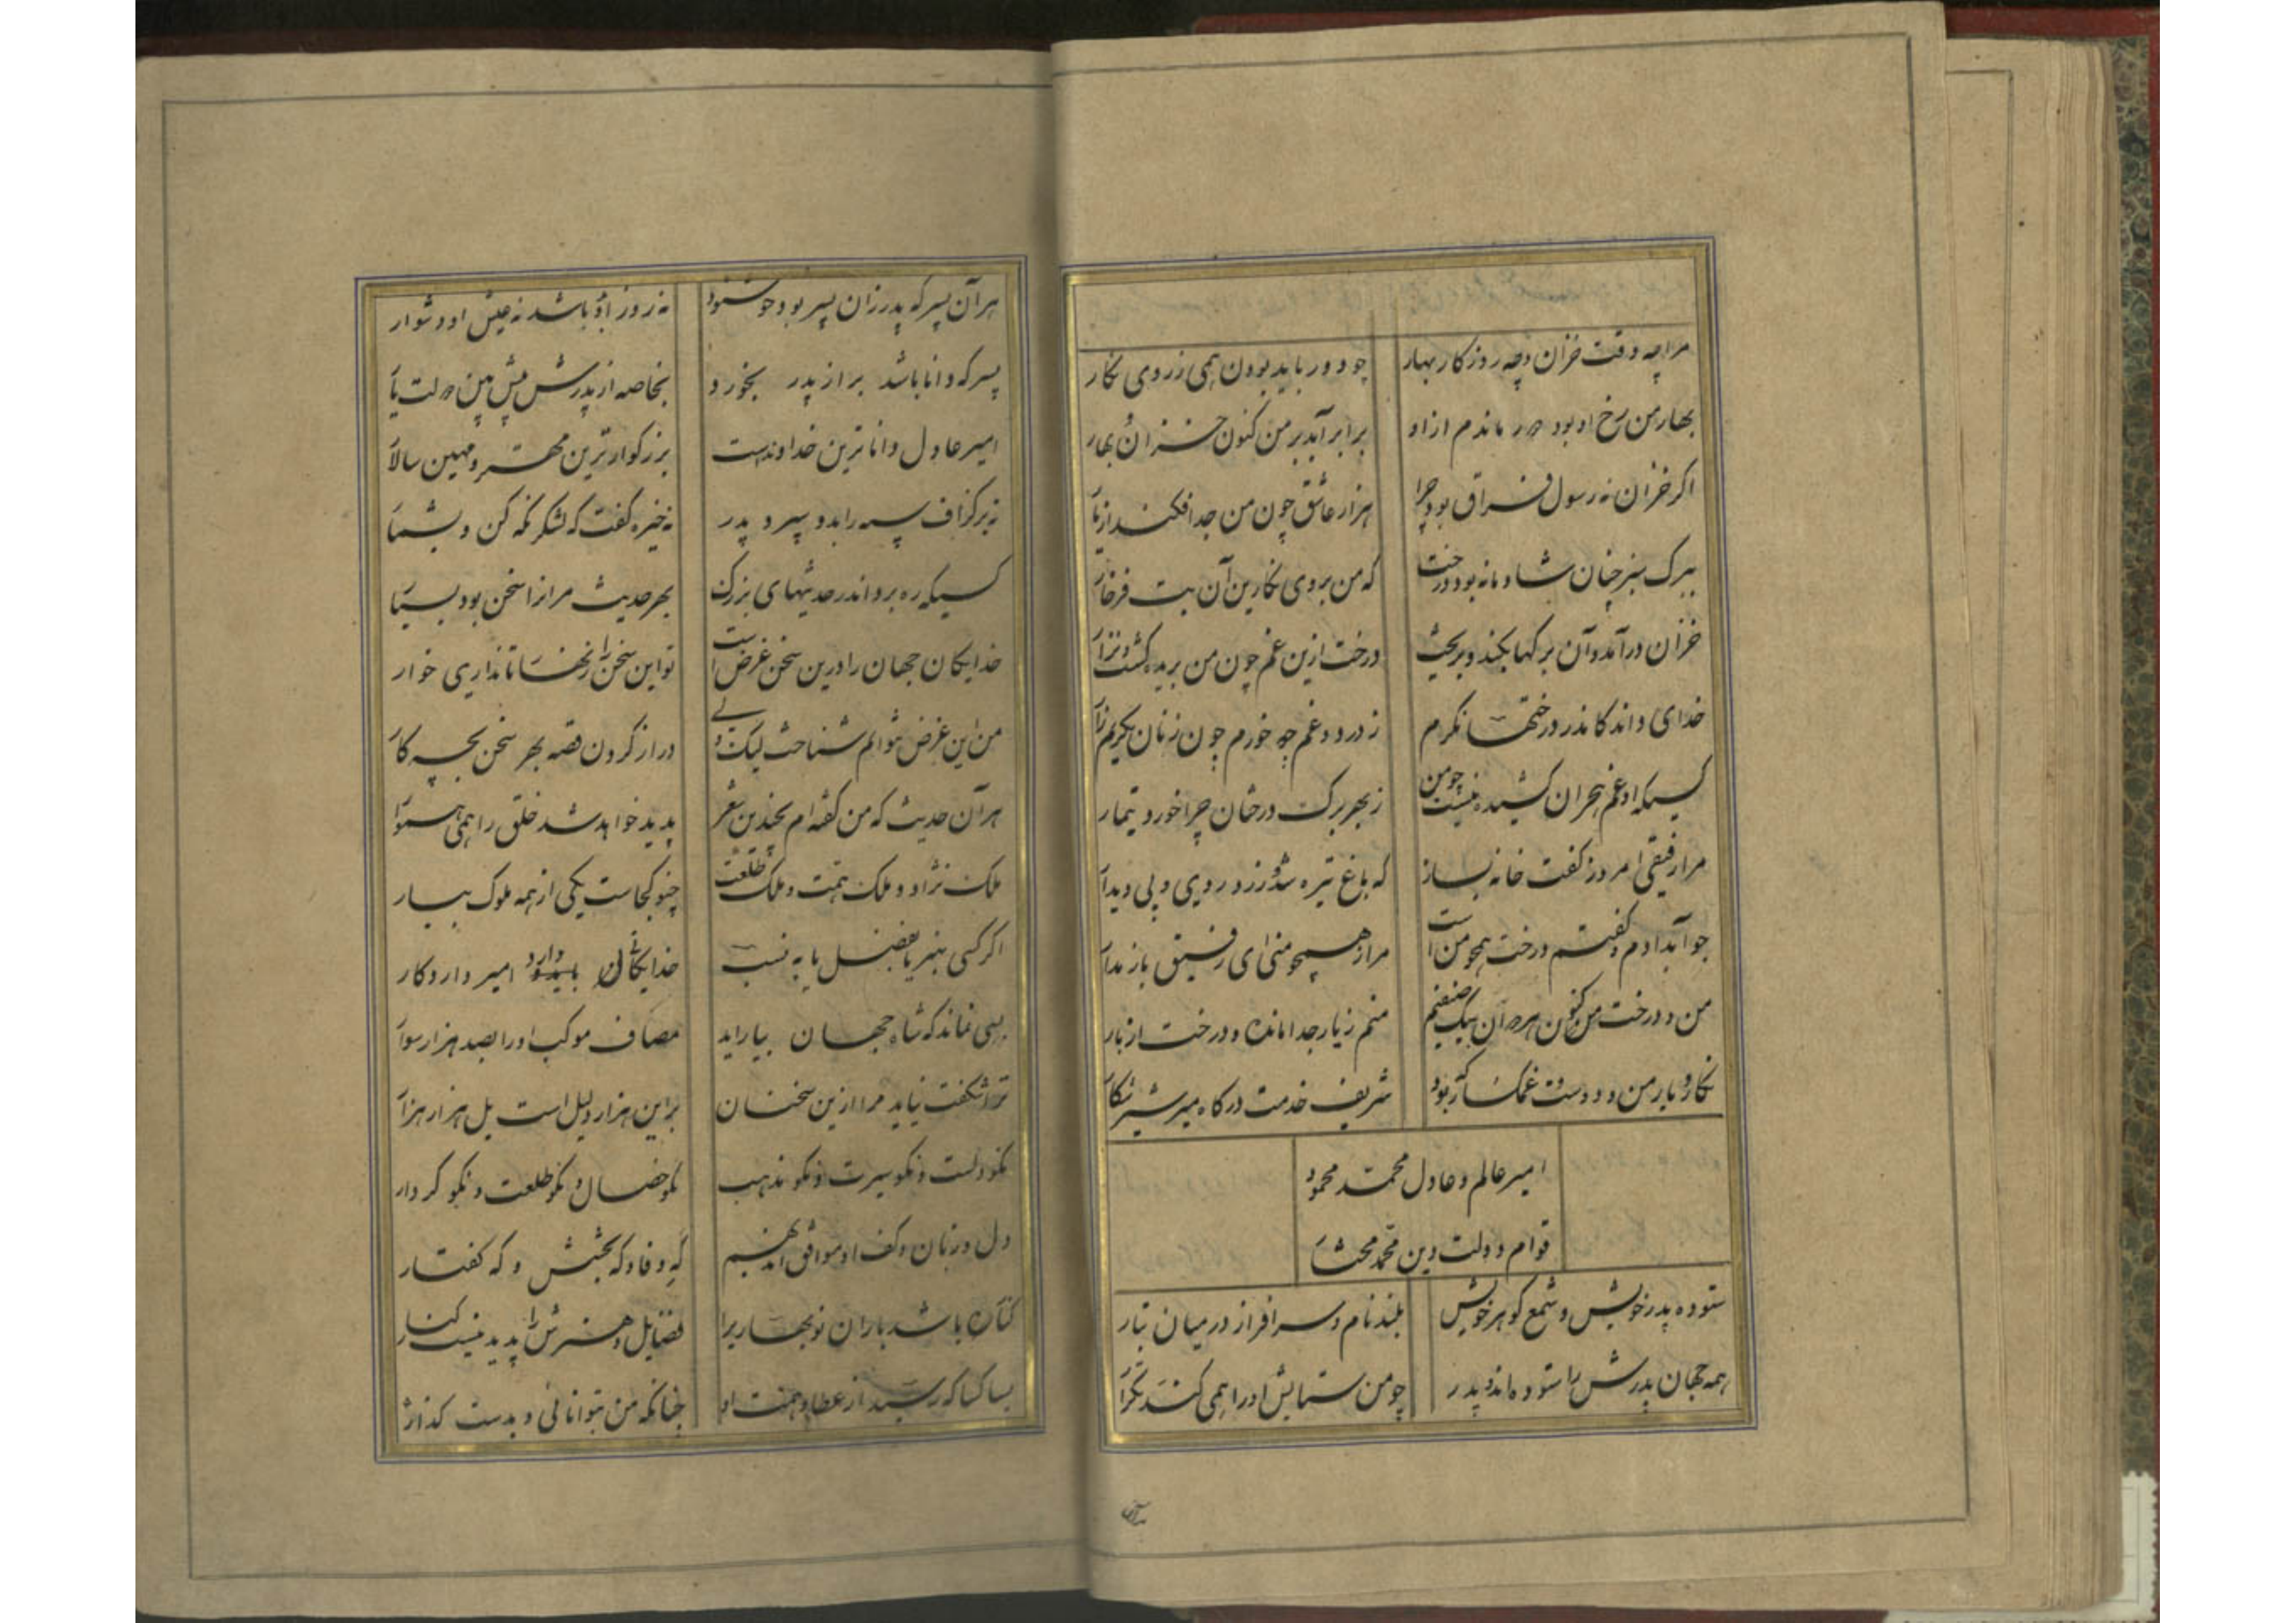 مرا چه وقت خزان و چه روزکار بهار
چو دور باید بودن همی زروی نکار
بهار من رخ او بود و دور ماندم ازاو
برابر آمد بر من کنون خزان و بهار
اکر خزان نه رسول فراق بود چرا
هزار عاشق چون من جدا فکند از یار
ببرک سبز چنان شادمانه بود درخت
که من بروی نکارین آن بت فرخار
خزان در آمد و آن برکها بکند و بریخت
درخت ازین غم چون من بریده کشت و نزار
خدای داند کاندر درختها نکرم
ز درد و غم چو خورم چون زنان بکریم زار
کسیکه او غم هجران کشیده نیست چو من
ز بهر برک درختان چرا خورد تیمار
مرا رفیقی امروز کفت خانه بساز
که باغ تیره شد و زرد روی و بی دیدار
جواب دادم و کفتم درخت همچو من است
مرا ز همچو منی ای رفیق باز مدار
من و درخت من کنون هر دوان بیک صفتیم
منم ز یار جدا مانده و درخت از بار
نکار و یار من و دوست غمکسار بود
شریف خدمت درکاه میر شیر شکار
امیر عالم و عادل محمد محمود
قوام دولت و دین محمد مختار
ستوده پدر خویش و شمع کوهر خویش
بلند نام و سر افراز در میان تبار
همه جهان پدرش را ستوده اند و پدر
چو من ستایش او را همی کند تکرار
هر آن پسر که پدر زان پسر بود خوشنود
نه روز او باشد نه عیش او دشوار
پسر که دانا باشد براز پدر بخورد
بخاصه از پدرش پیش بین دولت یار
امیر عادل داناترین خداوندست
بزرکوارترین مهتر و مهین سالار
نه بر کزاف سپه را بدو سپرد پدر
نه خیره کفت که لشکر نکه کن و بشمار
کسیکه ره برد اندر حدیثهای بزرک
بهر حدیث مر او را سخن بود بسیار
خدایکان جهان را درین سخن غرض است
تو این سخن را زنهار تا نداری خوار
من این غرض بتوانم شناخت لیک ولی
دراز کردن قصه بهر سخن بچه کار
هر آن حدیث که من کفته ام بچندین شعر
پدید خواهد شد خلق را همی هموار
ملک نژاد و ملک همت و ملک طلعت
چنو کجاست یکی از همه ملوک بیار
اکر کسی بهنر یا بفضل یا به نسب
خدایکان باید امیر دارد کار
بسی نماند که شاه جهان بیاراید
مصاف موکب او را بصد هزار سوار
ترا شکفت نیاید مرا ازین سخنان
براین هزار دلیل است بل هزار هزار
نکو دلست و نکو سیرت و نکو مذهب
نکو خصال و نکو طلعت و نکو کردار
دل و زبان و کف او موافق اند بهم
که وفا و که بخشش و که کفتار
کناره باشد باران نوبهاریرا
فضایل و هنرش را پدید نیست کنار
بسا کسا که رسید از عطا و همت او
چنانکه من بتوانائی و بدست کذار